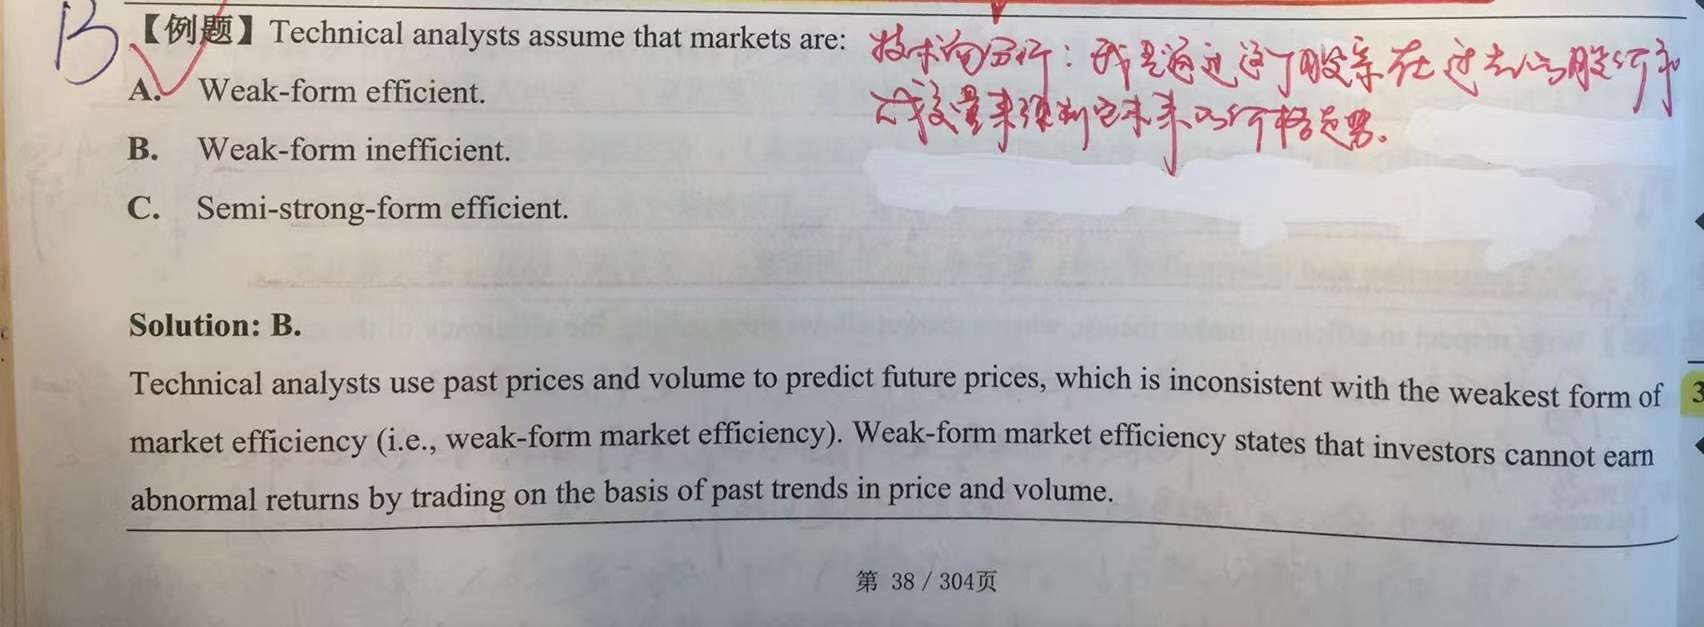 B
【例题】Technical analysts assume that markets are:
技术面分析：我是通过这个股票在过去的股价和
成交量来预判它未来的价格走势。
A. Weak-form efficient.
B. Weak-form inefficient.
C. Semi-strong-form efficient.
Solution: B.
Technical analysts use past prices and volume to predict future prices, which is inconsistent with the weakest form of
market efficiency (i.e., weak-form market efficiency). Weak-form market efficiency states that investors cannot earn
abnormal returns by trading on the basis of past trends in price and volume.
第 38 / 304页
3